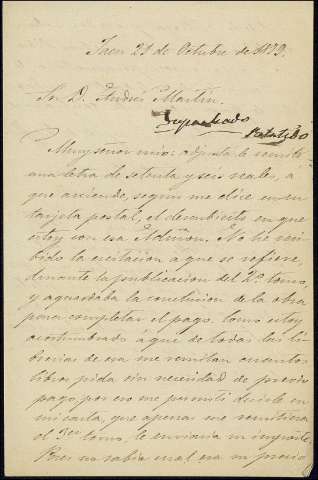 Jaen 21 de Octubre de 1899.
Sr. D. Andres Martin.
Muy señor mio: adjunta le remito
una letra de setenta y seis reales, á
que asciende, segun me dice en su
tarjeta postal, el descubierto en que
estoy con esa. No he reci-
bido la escitacion á que se refiere,
durante la publicacion del 2º tomo,
y aguardaba la conclusion de la obra
para completar el pago. Como estoy
acostumbrado á que de todas las li-
brerias de esa me remitan cuantos
libros pida sin necesidad de previo
pago por eso me permití decirle en
mi carta, que apenas me remitiera
el 3er tomo, le enviaria su importe.
Pues no sabia cual era su precio